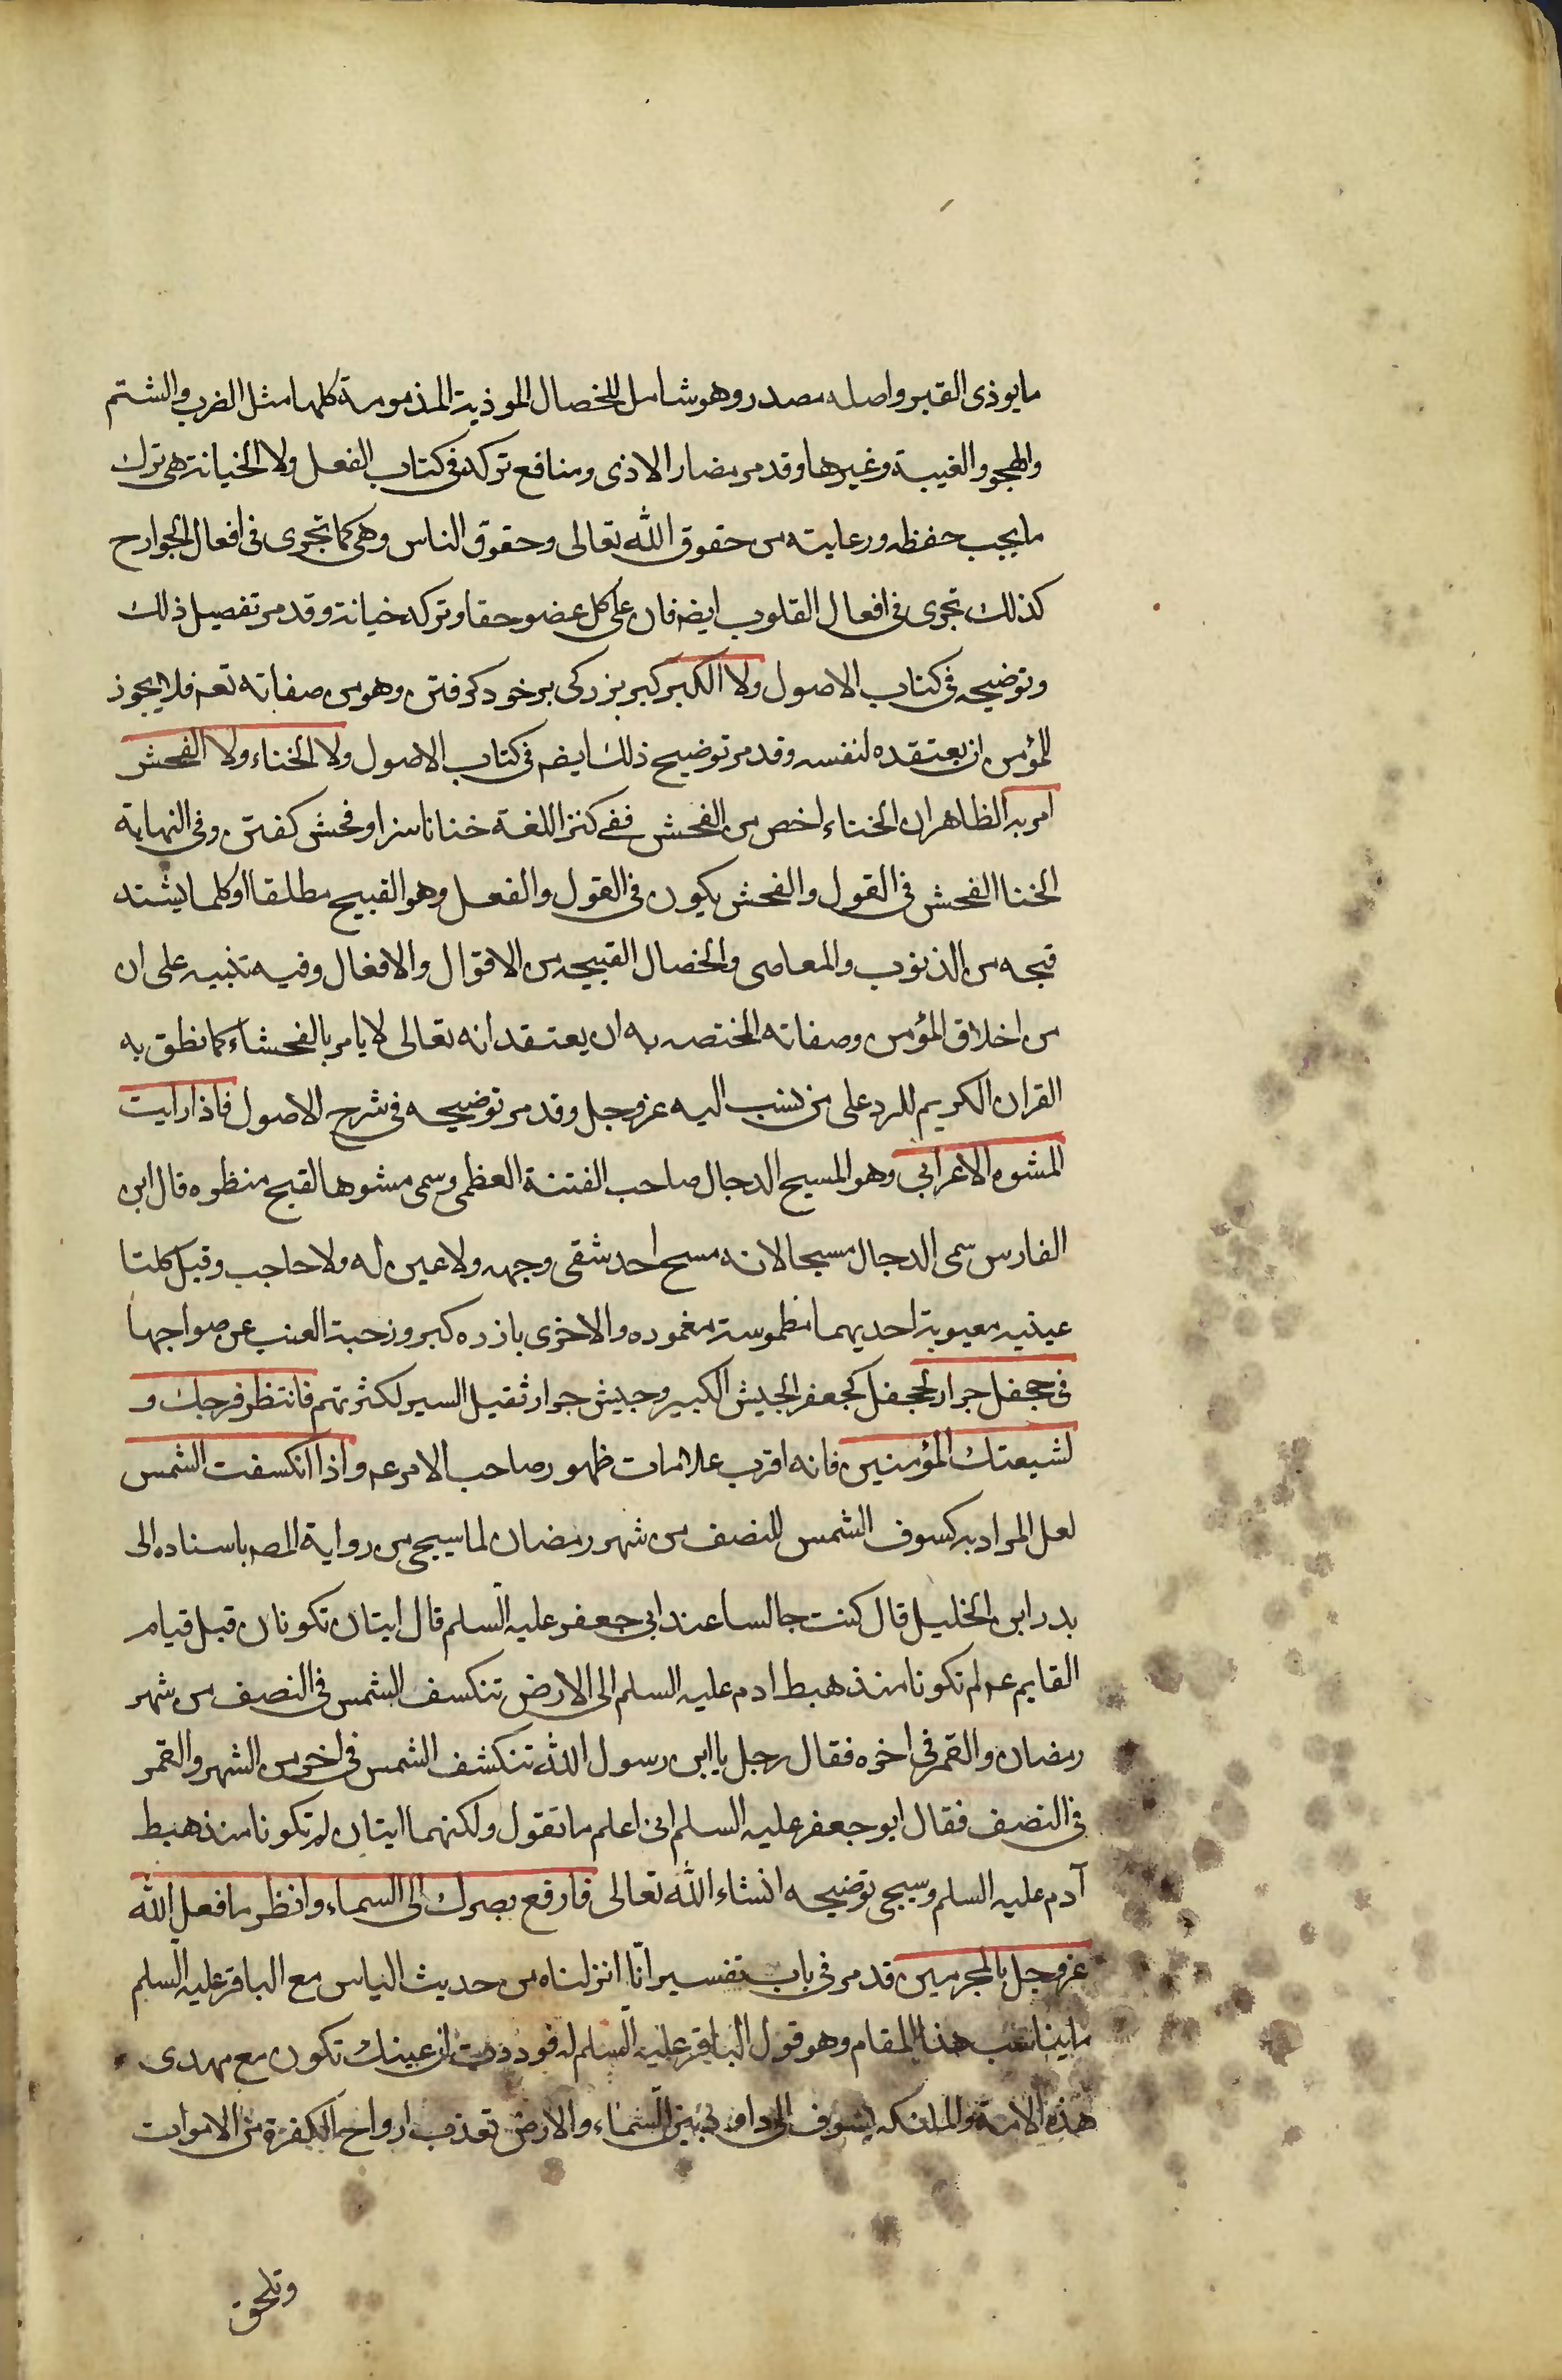 مايوذى القبر واصله مصدر وهو شامل للخصال الموذية المذمومة كلها مثل الضرب والشتم
والهجو والغيبة وغيرها وقد مر مضار الاذى ومنافع تركه فى كتاب الفعل ولا الخيانة هى ترك
ما يجب حفظه ورعايته من حقوق الله تعالى وحقوق الناس وهى كما تجرى فى افعال الجوارح
كذلك تجرى فى افعال القلوب ايضه فان على كل عضو حقا وتركه خيانة وقد مر تفصيل ذلك
وتوضيحه فى كتاب الاصول ولا الكبر كبر بزركى بر خود كرفتن وهو من صفاته تعه فلا يجوز
للمؤمن ان يعتقده لنفسه وقد مر توضيح ذلك ايضه فى كتاب الاصول ولا الخناء ولا الفحش
امر به الظاهر ان الخناء اخص من الفحش ففى كنز اللغة خنا ناسزا وفحش كفتن وفى النهاية
الخنا الفحش فى القول والفحش يكون فى القول والفعل وهو القبيح مطلقا او كلما يشتد
قبحه من الذنوب والمعاصى والخصال القبيحه من الاقوال والافعال وفيه تنبيه على ان
من اخلاق المؤمن وصفاته المختصه به ان يعتقد انه تعالى لا يامر بالفحشاء كما نطق به
القران الكريم للرد على من نسب اليه عز وجل وقد مر توضيحه فى شرح الاصول فاذا رايت
المشوه الاعرابى وهو المسيح الدجال صاحب الفتنة العظمى وسمى مشوها لقبح منظره قال ابن
الفارس سمى الدجال مسيحا لانه مسح احد شقى وجهه ولا عين له ولا حاجب وقيل كلتا
عينيه معيوبة احديهما مطموسة مغموده والاخرى بارزه كبروز حبة العنب عن صواحبها
فى جحفل جرار الجحفل كجعفر الجيش الكبير وجيش جرار ثقيل السير لكثرتهم فانتظر فرجك و
لشيعتك المؤمنين فانه اقرب علامات ظهور صاحب الامر عه واذا انكسفت الشمس
لعل المراد به كسوف الشمس للنصف من شهر رمضان لما سيجى من رواية المصه باسناده الى
بدر ابن الخليل قال كنت جالسا عند ابى جعفر عليه السلم قال ايتان تكونان قبل قيام
القايم عه لم تكونا منذ هبط ادم عليه السلم الى الارض تنكسف الشمس فى النصف من شهر
رمضان والقمر فى اخره فقال رجل يا ابن رسول الله تنكشف الشمس فى اخر من الشهر والقمر
فى النصف فقال ابو جعفر عليه السلم انى اعلم ما تقول ولكنهما ايتان لم تكونا منذ هبط
آدم عليه السلم وسيجى توضيحه انشاء الله تعالى فارفع بصرك الى السماء وانظر ما فعل الله
عز وجل بالمجرمين قد مر فى باب تفسير انّا انزلناه من حديث الياس مع الباقر عليه السلم
ما يناسب هذا المقام وهو قول الباقر عليه السلم له فوددت ان عينك تكون مع مهدى
هذه الامة والملئكه بسيوف ال داود بين السماء والارض تعذب ارواح الكفرة من الاموات
وتلحق